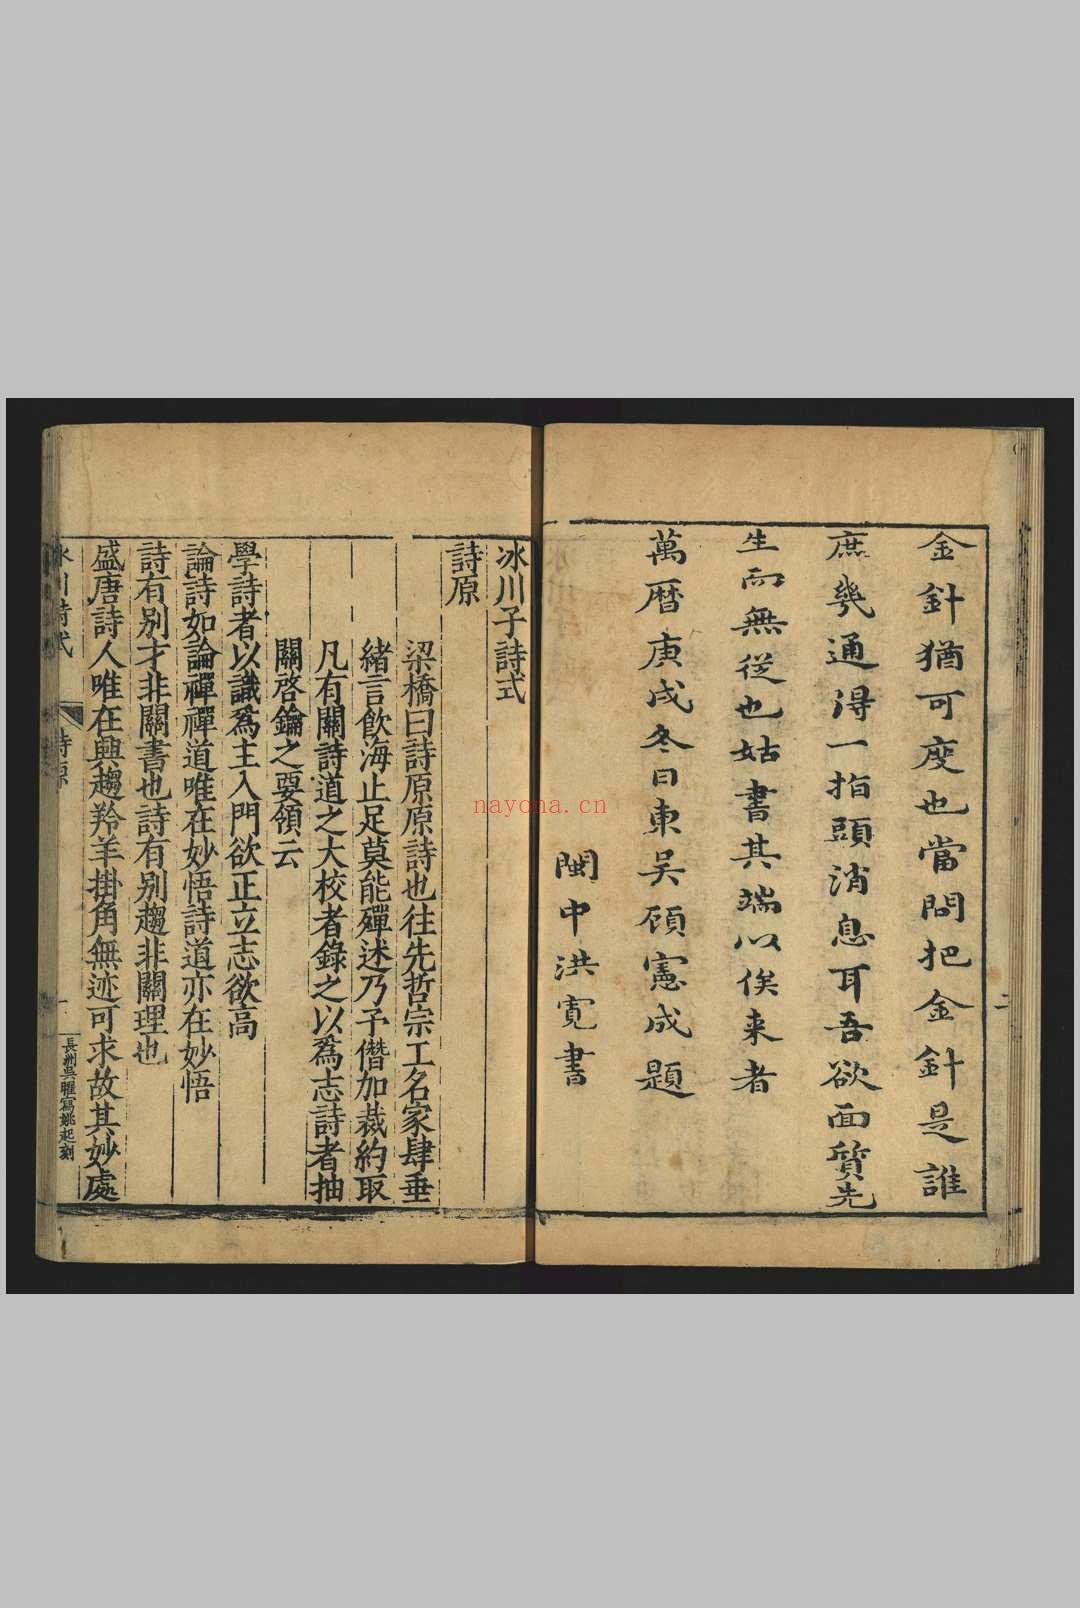 金針猶可度也當問把金針是誰
庶幾通得一指頭消息耳吾欲面質先
生而無從也姑書其端以俟来者
萬曆庚戌冬日東吳顧憲成題
閩中洪寬書
二
冰川子詩式
詩原
梁橋曰詩原原詩也往先哲宗工名家肆垂
緒言飲海止足莫能殫述乃予僭加裁約取
凡有關詩道之大校者錄之以為志詩者抽
關啓鑰之要領云
學詩者以識為主入門欲正立志欲高
論詩如論禪禪道唯在妙悟詩道亦在妙悟
詩有别才非關書也詩有别趣非關理也
盛唐詩人唯在興趣羚羊掛角無迹可求故其妙處
冰川詩式
詩原
一
長洲吳曜寫姚起刻
nayona.cn